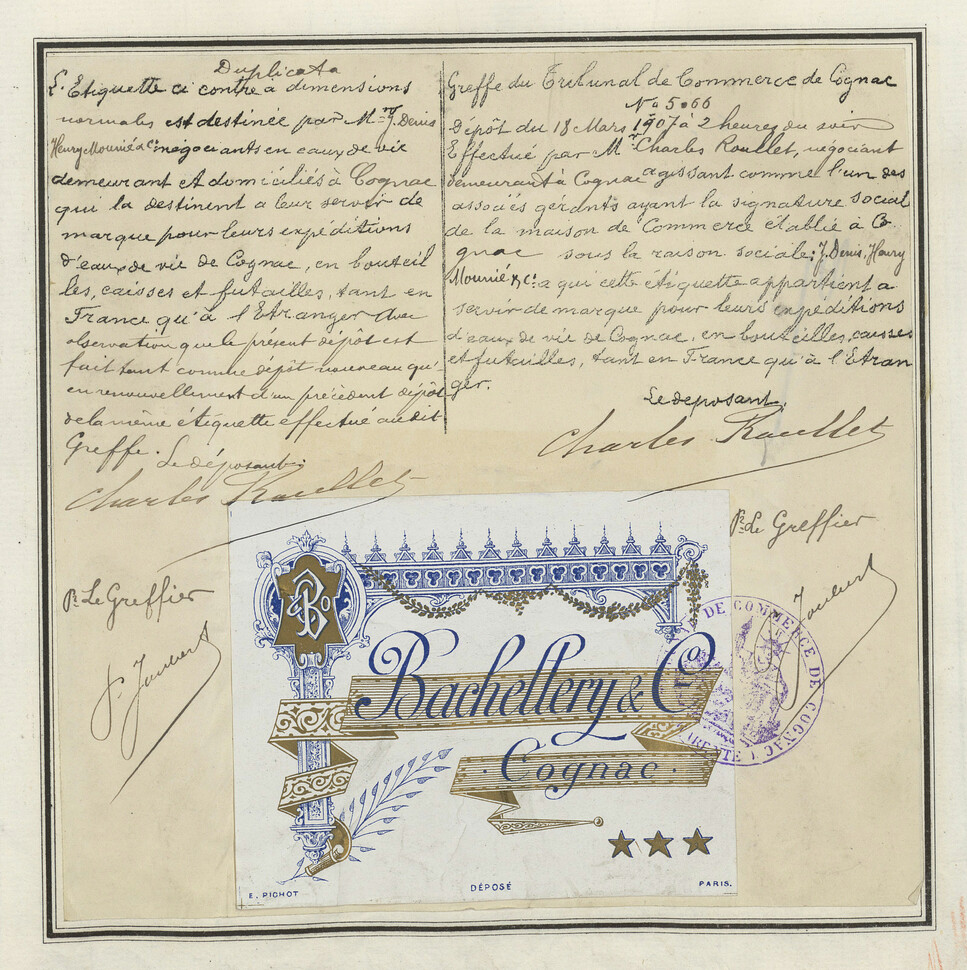 Duplicata
L'Etiquette ci contre a dimensions
normales est destinée par Mrs J. Denis
Henry Mounié & Cie négociants en eaux de vie
demeurant et domiciliés à Cognac
qui la destinent a leur servir de
marque pour leurs expéditions
d'eaux de vie de Cognac, en bouteil
les, caisses et futailles, tant en
France qu'à l'Etranger avec
observation que le présent dépôt est
fait tant comme dépôt nouveau qu'
en renouvellement d'un précédent dépôt
de la même étiquette effectué au dit
Greffe. Le déposant:
Charles Roullet
Pr Le Greffier
Joubert
Greffe du Tribunal de Commerce de Cognac
No 5.066
Dépôt du 18 Mars 1907 à 2 heures du soir
Effectué par Mr Charles Roullet, négociant
demeurant à Cognac agissant comme l'un des
associés gérants ayant la signature social
de la maison de Commerce établié à Co
gnac sous la raison sociale: J. Denis, Henry
Mounié & Cie a qui cette étiquette appartient a
servir de marque pour leurs expéditions
d'eaux de vie de Cognac, en bouteilles, caisses
et futailles, tant en France qu'à l'Etran
ger.
Le deposant,
Charles Roullet
Pr Le Greffier
Joubert
B & Co
Bachellery & Co
Cognac
E. PICHOT
DÉPOSÉ
PARIS.
DE COMMERCE DE COGNAC